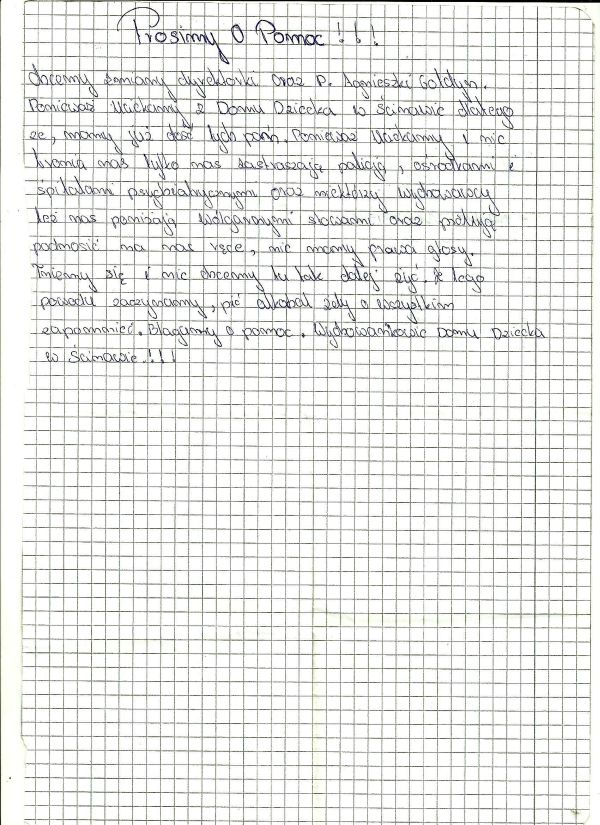 Prosimy O Pomoc !!!
Chcemy zmiany dyrektorki oraz P. Agnieszki Gołdyn.
Ponieważ Uciekamy z Domu Dziecka w Ścinawie dlatego
że, mamy już dość tych pań. Ponieważ Uciekamy i nic
bronią nas tylko nas zastraszają policją, ośrodkami i
śpitalami psychiatrycznymi oraz niektórzy wychowawcy
też nas poniżają wólgarnymi słowami oraz próbują
podnosić na nas ręce, nic mamy prawa głosy.
Tniemy się i nic chcemy tu tak dalej żyć. Z tego
powodu zaczynamy, pić alkohol żeby o wszystkim
zapomnieć. Błagamy o pomoc. Wychowankowie Domu Dziecka
w Ścinawie.!!!